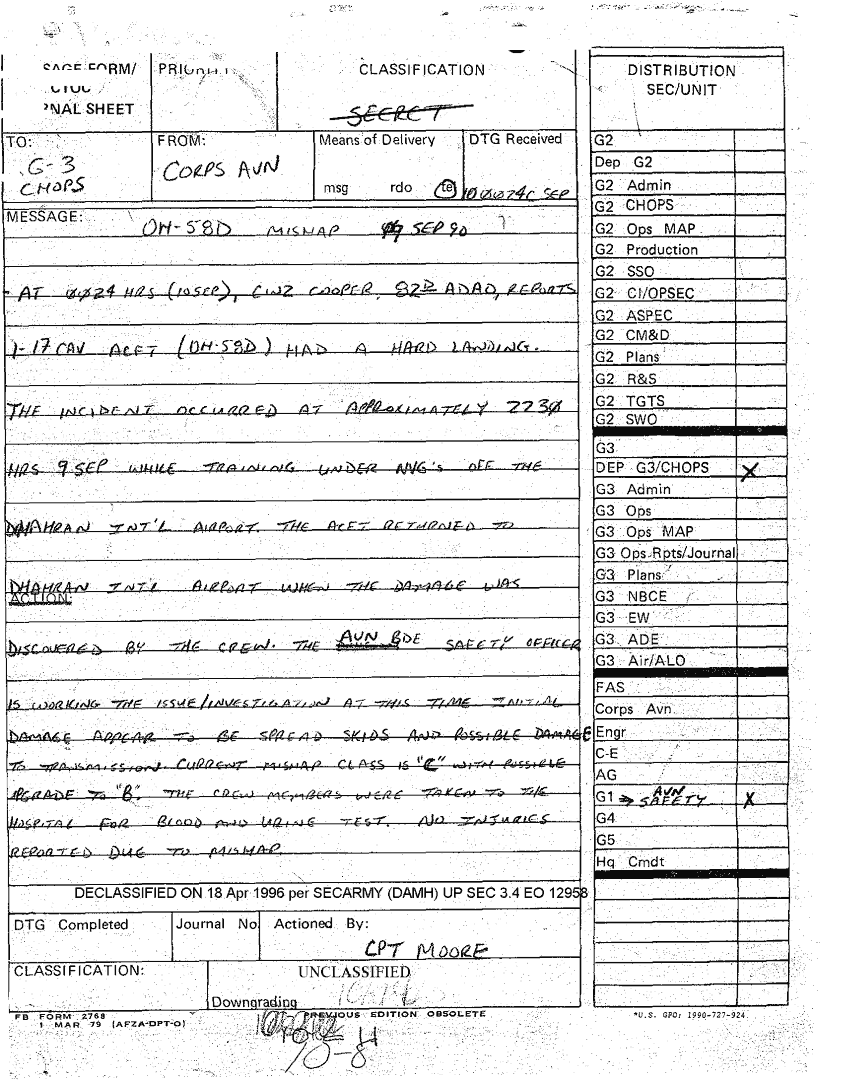 SAGE FORM/
PRIORIT
CLASSIFICATION
NAL SHEET
SECRET
TO:
G-3
CHOPS
FROM:
CORPS AVN
Means of Delivery
msg rdo te
DTG Received
100074C SEP
MESSAGE:
OH-58D MISHAP 09 SEP 90
- AT 0024 HRS (10SEP), CW2 COOPER, 82D ADAD, REPORTS
1-17 CAV ACFT (OH-58D) HAD A HARD LANDING.
THE INCIDENT OCCURRED AT APPROXIMATELY 2230
HRS 9 SEP WHILE TRAINING UNDER NVG'S OFF THE
DHAHRAN INT'L AIRPORT. THE ACFT RETURNED TO
DHAHRAN INT'L AIRPORT WHEN THE DAMAGE WAS
ACTION:
DISCOVERED BY THE CREW. THE AVN BDE SAFETY OFFICER
IS WORKING THE ISSUE/INVESTIGATION AT THIS TIME INITIAL
DAMAGE APPEAR TO BE SPREAD SKIDS AND POSSIBLE DAMAGE
TO TRANSMISSION. CURRENT MISHAP CLASS IS "C" WITH POSSIBLE
UPGRADE TO "B". THE CREW MEMBERS WERE TAKEN TO THE
HOSPITAL FOR BLOOD AND URINE TEST. NO INJURIES
REPORTED DUE TO MISHAP.
DECLASSIFIED ON 18 Apr 1996 per SECARMY (DAMH) UP SEC 3.4 EO 12958
DTG Completed
Journal No
Actioned By:
CPT MOORE
CLASSIFICATION:
UNCLASSIFIED
Downgrading
FB FORM 2768
1 MAR 79 (AFZA-DPT-O)
PREVIOUS EDITION OBSOLETE
10-84
DISTRIBUTION
SEC/UNIT
G2
Dep G2
G2 Admin
G2 CHOPS
G2 Ops MAP
G2 Production
G2 SSO
G2 CI/OPSEC
G2 ASPEC
G2 CM&D
G2 Plans
G2 R&S
G2 TGTS
G2 SWO
G3
DEP G3/CHOPS X
G3 Admin
G3 Ops
G3 Ops MAP
G3 Ops Rpts/Journal
G3 Plans
G3 NBCE
G3 EW
G3 ADE
G3 Air/ALO
FAS
Corps Avn
Engr
C-E
AG
G1 → AVN SAFETY X
G4
G5
Hq Cmdt
*U.S. GPO: 1990-727-924